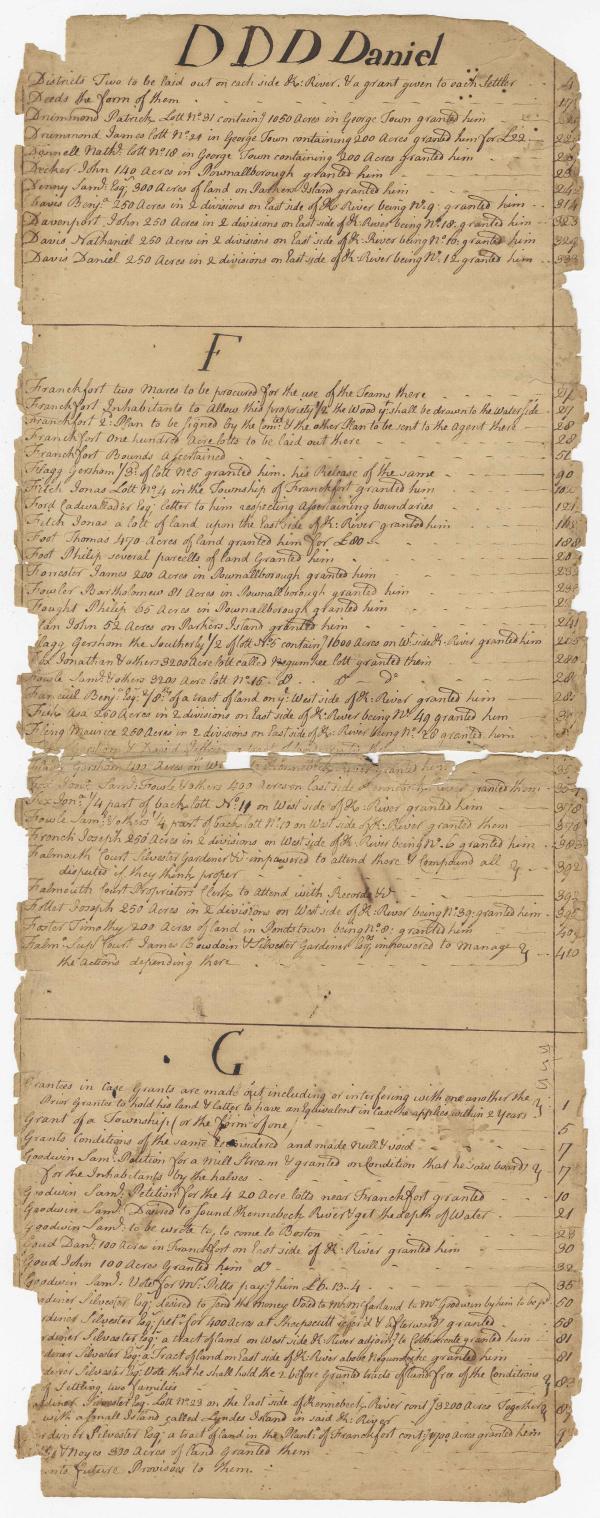 D D D Daniel
Districts Two to be laid out on each side K: River, & a grant given to each Settler 4
Deeds the form of them 17
Drummond Patrick Lott No. 31 containg 1050 Acres in George Town granted him
Drummond James lott No. 24 in George Town containing 200 Acres granted him for £22
Donnell Nathl. lott No. 18 in George Town containing 200 Acres granted him
Decker John 140 Acres in Pownallborough granted him
Denny Saml. Esqr. 300 Acres of land on Parkers Island granted him
Benja. 250 Acres in 2 divisions on East side of K River being No. 9: granted him 314
Davenport John 250 Acres in 2 divisions on East side of K: River being No. 18: granted him 323
Davis Nathaniel 250 Acres in 2 divisions on East side of K: River being No. 16: granted him 329
Davis Daniel 250 Acres in 2 divisions on East side of K: River being No. 12 granted him 333
F
Franckfort two Mares to be procured for the use of the Teams there
Franckfort Inhabitants to Allow this propriety 1/2 the Wood yt. shall be drawn to the Water side 27
Franckfort 2: Plan to be signed by the Comtee. & the other Plan to be sent to the Agent there 28
Franckfort One hundred Acre lotts to be laid out there 28
Franckfort Bounds Ascertained
Flagg Gershom 1/3: of lott No. 5 granted him. his Release of the same 90
Fitch Jonas Lott No. 4 in the Township of Franckfort granted him
Ford Cadwallader Esqr. letter to him respecting Ascertaining boundaries 121
Fitch Jonas a lott of land upon the East side of K: River granted him
Foot Thomas 470 Acres of land granted him for £80 188
Foot Philip several parcells of land Granted him
Forrester James 200 Acres in Pownallborough granted him
Fowler Bartholomew 81 Acres in Pownallborough granted him
Fought Philip 65 Acres in Pownallborough granted him
John 52 Acres on Parkers Island granted him 241
Flagg Gershom the Southerly 1/2 of lott No. 5 containg 1600 Acres on Wt. side K: River granted him
Fox Jonathan & others 3200 Acre lott called Negumkee lott granted them 280
Fowle Saml. & others 3200 Acre lott No. 15 do. do. do.
Faneuil Benja. Esqr. 1/8th. of a tract of land on ye. West side of K: River granted him
Fisk Asa 250 Acres in 2 divisions on East side of K: River being No. 49 granted him
Fling Maurice 250 Acres in 2 divisions on East side of K: River being No. 28 granted him
Flagg Gershom 400 Acres on granted him
Saml: Fowle & others 400 Acres on East side granted them
Fox Jona. 1/4 part of back lott No. 11 on West side of K River granted him 378
Fowle Saml. & others 1/4 part of back lott No. 10 on West side of K: River granted them 378
French Joseph 250 Acres in 2 divisions on West side of K: River being No. 6 granted him 383
Falmouth Court Silvester Gardiner &c. impowered to attend there & Compound all
disputes if they think proper 392
Falmouth Court Proprietors Clerk to Attend with Records &c. 392
Follet Joseph 250 Acres in 2 divisions on West side of K: River being No. 39: granted him 395
Foster Timothy 200 Acres of land in Pondstown being No. 8: granted him 409
Falmo. Supr. Court James Bowdoin & Silvester Gardiner Esqrs. impowered to Manage
the Actions depending there 410
G
Grantees in Case Grants are made out including or interfering with one another the
Prior Grantee to hold his land & latter to have an Equivalent in Case he applies within 2 Years 1
Grant of a Township (or the form of one) 5
Grants Conditions of the same Considered and made null & void 7
Goodwin Saml. Petition for a Mill Stream & granted on Condition that he saw boards
for the Inhabitants by the halves 17
Goodwin Saml. Petition for the 4 20 Acre lotts near Franckfort granted 10
Goodwin Saml. Desired to found Kennebeck River & get the depth of Water 21
Goodwin Saml: to be wrote to, to come to Boston 23
Goud Danl: 100 Acres in Franckfort on East side of K: River granted him 30
Goud John 100 Acres Granted him do. 32
Goodwin Saml. Vote for Mr. Pitts payg. him £6.13.4 35
Gardiner Silvester Esqr. desired to send the money Voted to Wm. McFarland to Mr. Goodwin by him to be pd. 50
Gardiner Silvester Esqr. petn. for 400 Acres at Sheepscutt & afterward granted 58
Gardiner Silvester Esqr. a tract of land on West side K River adjoing. to Cobbisconte granted him 81
Gardiner Silvester Esqr. a Tract of land on East side of K: River above granted him 81
Gardiner Silvester Esqr. Vote that he shall hold the 2 before Granted tracts of land free of the Conditions
of Settling two families
Gardiner Silvester Esqr. Lott No. 23 on the East side of Kennebeck River contg. 3200 Acres Together
with a small Island called Lyndes Island in said K River
Gardiner Silvester Esqr. a tract of land in the Plantn. of Franckfort contg. Acres granted him
& Noyes 330 Acres of land Granted them
into future Provisoes to Them